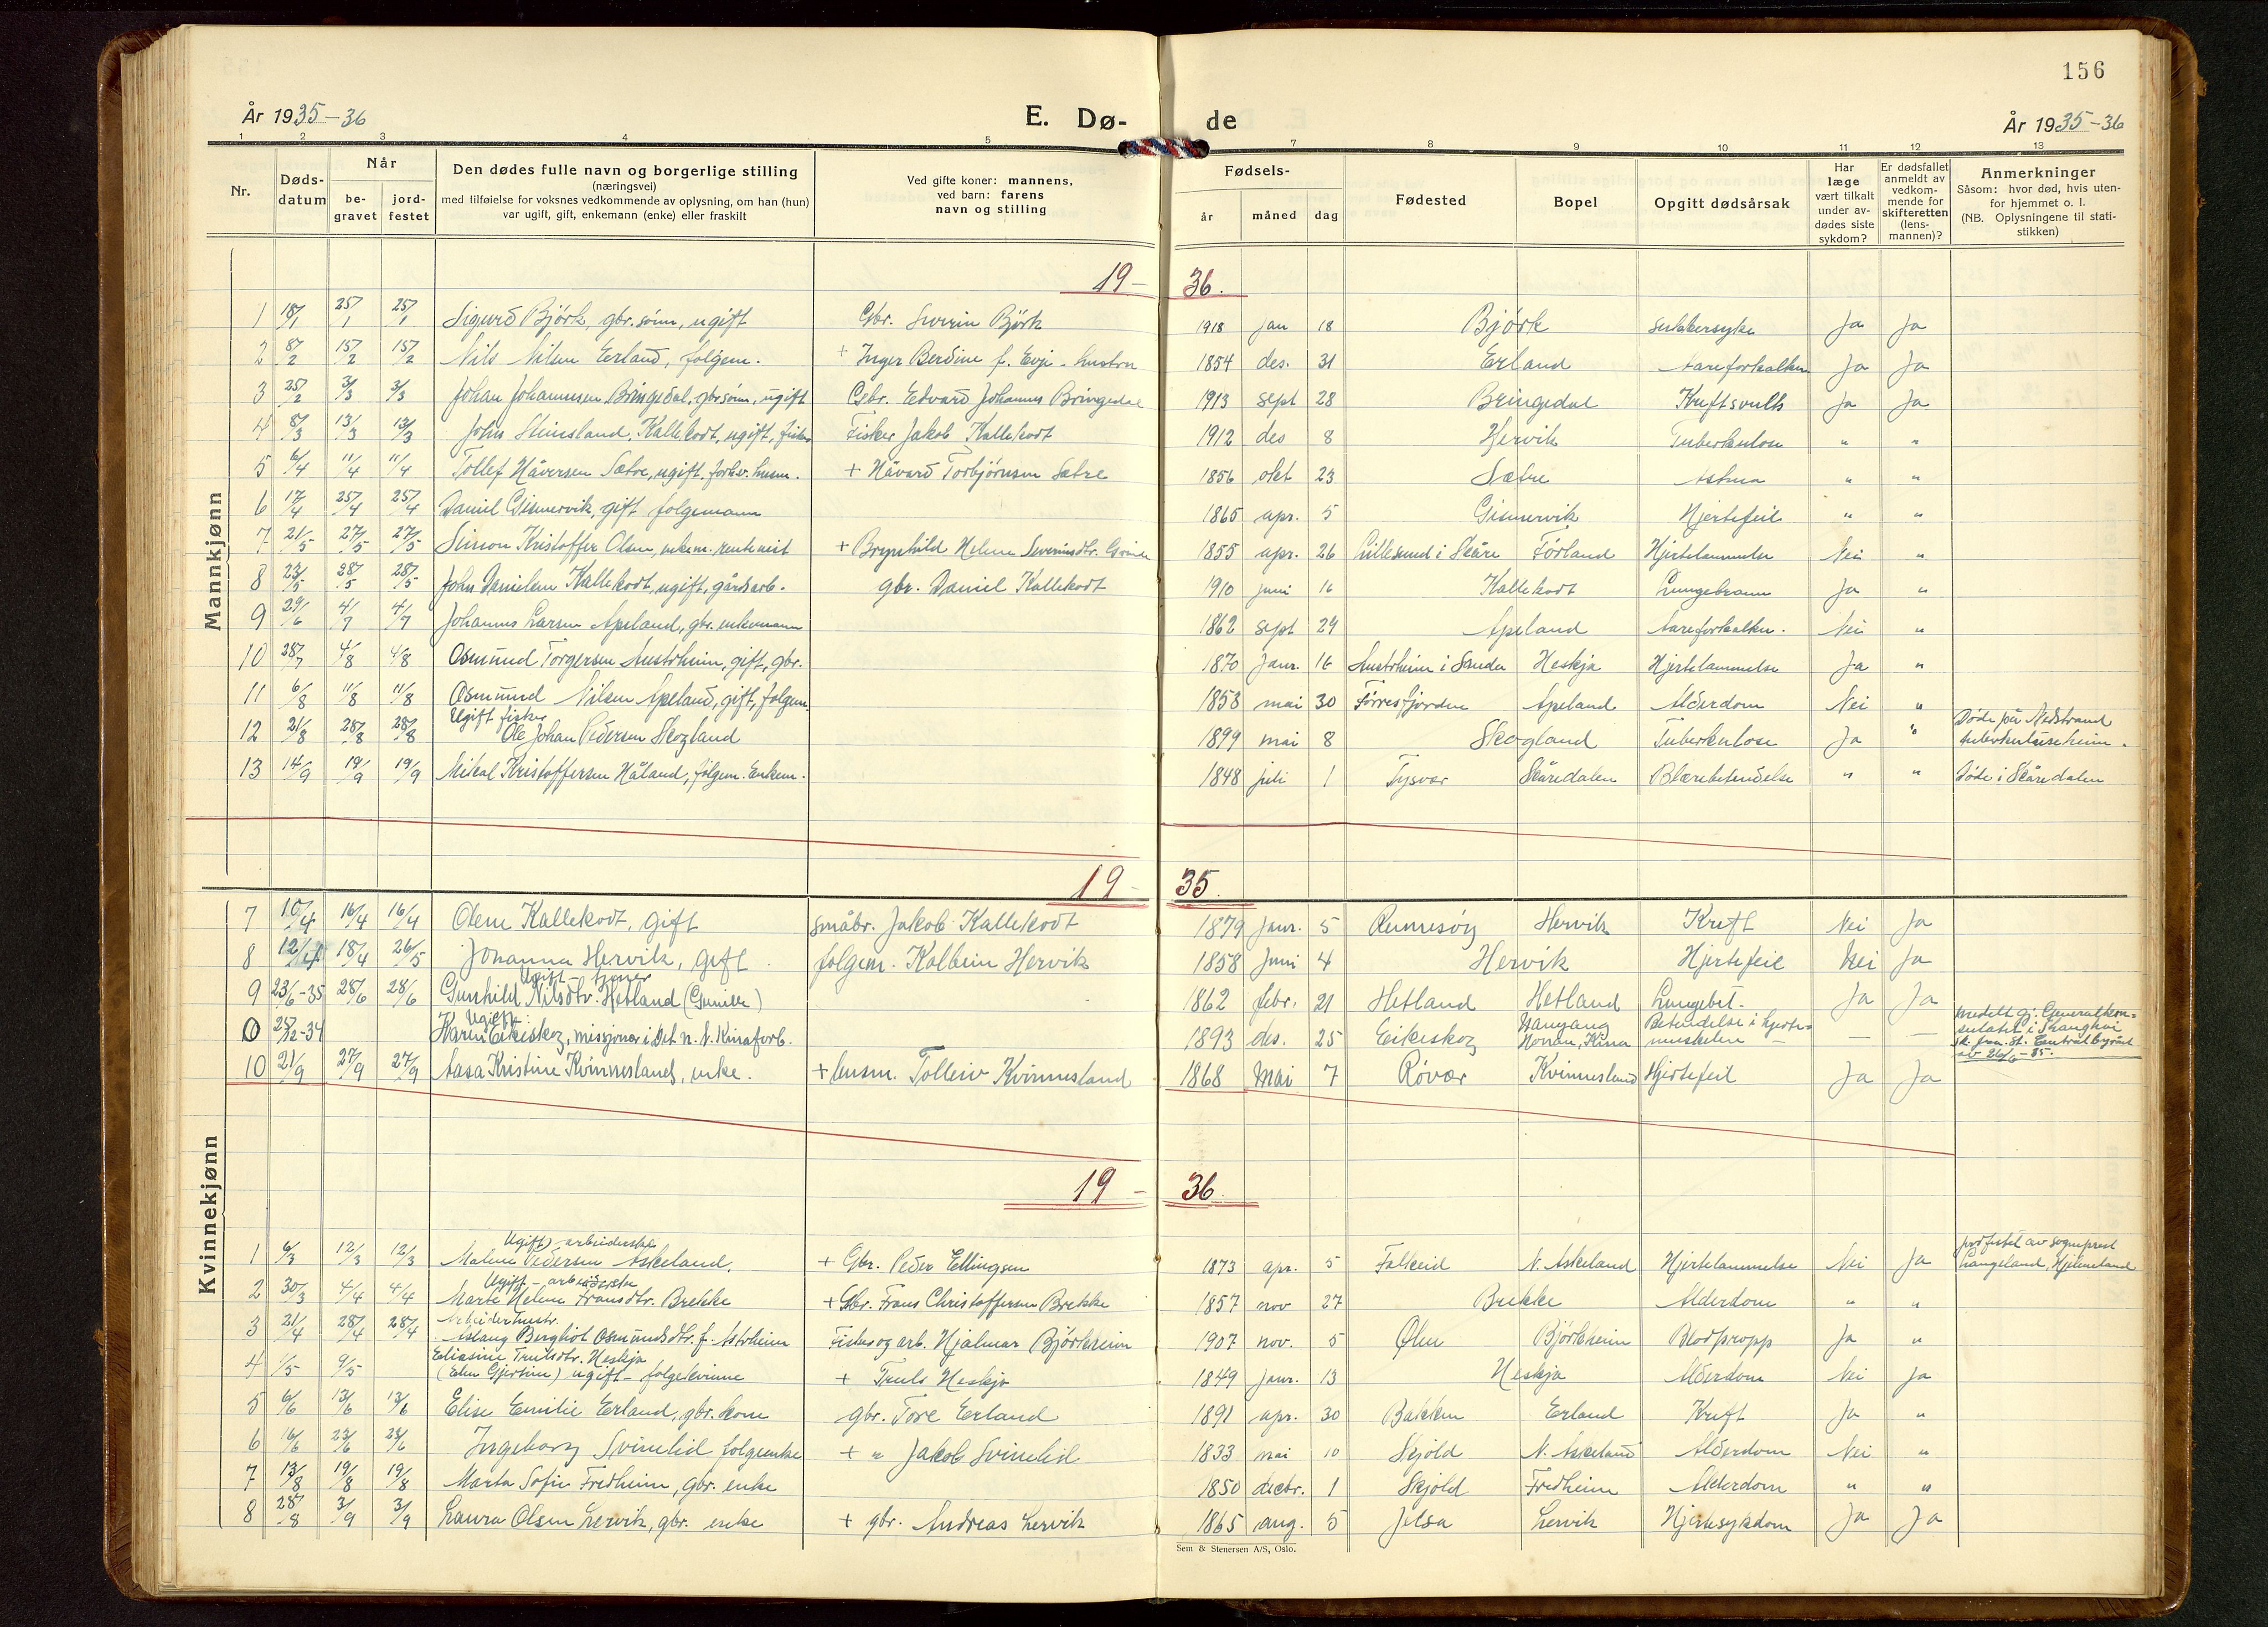 156
År 1935-36
E. Dø-
de
År 1935-36
1 2 3 4 5 7 8 9 10 11 12 13
Nr.
Døds-
datum
Når
be-
gravet
jord-
festet
Den dødes fulle navn og borgerlige stilling
(næringsvei)
med tilføielse for voksnes vedkommende av oplysning, om han (hun)
var ugift, gift, enkemann (enke) eller fraskilt
Ved gifte koner: mannens,
ved barn: farens
navn og stilling
Fødsels-
år måned dag
Fødested
Bopel
Opgitt dødsårsak
Har
læge
vært tilkalt
under av-
dødes siste
sykdom?
Er dødsfallet
anmeldt av
vedkom-
mende for
skifteretten
(lens-
mannen)?
Anmerkninger
Såsom: hvor død, hvis uten-
for hjemmet o. l.
(NB. Oplysningene til stati-
stikken)
Mannkjønn
19- 36.
1 18/1 25/1 25/1 Sigurd Bjórk, gbr. sönn, ugift Gbr. Sverin Björk 1918 jan 18 Bjórk sukkersyke Ja Ja
2 8/2 15/2 15/2 Nils Nilsen Eerland, folgem. + Inger Berdine f. Evje - hustru 1854 des. 31 Erland Aareforkalkn Ja Ja
3 25/2 3/3 3/3 Johan Johannesen Bringedal, gbrsönn, ugift Gbr. Edvard Johannes Bringedal 1913 sept 28 Bringedal Kreftsvulst Ja Ja
4 8/3 13/3 13/3 John Steinsland, Kallekodt, ugift, fisker Fisker Jakob Kallekodt 1912 des 8 Hervik Tuberkulose " "
5 6/4 11/4 11/4 Tollef Håversen Sætre, ugift. forhv. husm. + Håvard Torbjörnsen Sætre 1856 okt 23 Sætre Astma " "
6 17/4 25/4 25/4 Daniel Gismervik, gift folgemann 1865 apr. 5 Gismervik Hjertefeil " "
7 21/5 27/5 27/5 Simon Kristoffer Olsen, enkem. rentenist + Brynhild Helene Severinsdtr. 1855 apr. 26 Lillesund i Skåre Førland Hjertelammelse Nei "
8 23/5 28/5 28/5 John Danielsen Kallekodt, ugift, gårdsarb. gbr. Daniel Kallekodt 1910 juni 16 Kallekodt Lungebrann Ja "
9 29/6 4/7 4/7 Johannes Larsen Apeland, gbr. enkemann 1862 sept 24 Apeland Aareforkalkn. Nei "
10 28/7 4/8 4/8 Osmund Torgersen Austrheim, gift, gbr. 1870 Janr. 16 Austrheim i Sauda Heskja Hjertelammelse Ja "
11 6/8 11/8 11/8 Osmund Nilsen Apeland, gift, folgem. 1858 mai 30 Förresfjorden Apeland Alderdom Nei "
12 21/8 28/8 28/8 Ugift fisker
Ole Johan Pedersen Skogland 1899 mai 8 Skogland Tuberkulose Ja " Döde på Nedstrand
tuberkuloseheim.
13 14/9 19/9 19/9 Mikal Kristoffersen Håland, fölgem. Enkem. 1848 juli 1 Tysvær Skåredalen Blærebetendelse " " Döde i Skåredalen
Kvinnekjønn
19- 35.
7 10/4 16/4 16/4 Olene Kallekodt, gift småbr. Jakob Kallekodt 1879 Janr. 5 Rennesøy Hervik Kreft Nei Ja
8 12/4 18/4 26/5 Johanna Hervik, gift. folgem. Kolbein Hervik 1858 Juni 4 Hervik Hjertefeil Nei Ja
9 23/6-35 28/6 28/6 Ugift -
Gunhild Nilsdtr. Hetland 1862 febr. 21 Hetland Hetland Lungebet. Ja Ja
0 25/12-34 Ugift:
Karen Eikeskog, missjonær i Det n. l. Kinaforb. 1893 des. 25 Eikeskog Honan, Kina Betendelse i hjerte-
muskelen - - - meddelt gj. Generalkon-
sulatet i Shanghai
sk. fra St. Centralbyrået
10 21/9 27/9 27/9 Aasa Kristine Kvinnesland, enke. + husm. Tolleiv Kvinnesland 1868 Mai 7 Röver Kvinnesland Hjertefeil Ja Ja
19- 36.
1 6/3 12/3 12/3 Ugift) arbeiderske
Malene Pedersen Askeland. + Gbr. Peder Ellingsen 1873 apr. 5 Falkeid N. Askeland Hjertelammelse Nei Ja jordfestet av sogneprest
Langeland, Hjelmeland
2 30/3 4/4 4/4 Ugift - arbeiderske
Marta Helene Fransdtr. Brekke + Gbr. Frans Christoffersen Brekke 1857 nov 27 Brekke Alderdom " "
3 21/4 28/4 28/4 Arbeiderhustr.
Aslaug Bergliot Osmundsdtr. f. Astrheim Fisker og arb. Hjalmar Björkheim 1907 nov. 5 Ølen Björkheim Blodpropp Ja "
4 1/5 9/5 Eliasine Trulsdtr. Heskja
ugift - folgekvinne + Truls Heskja 1849 Janr. 13 Heskja Alderdom Nei Ja
5 6/6 13/6 13/6 Elise Emilie Erland, gbr. kone gbr. Tore Eerland 1891 apr. 30 Bakken Erland Kreft Ja "
6 16/6 23/6 23/6 Ingeborg Svinelid folgeenke + " Jakob Svinelid 1833 mai 10 Skjold N. Askeland Alderdom Nei "
7 13/8 19/8 19/8 Marta Sofie Fredheim, gbr. enke 1850 decbr. 1 Skjold Fredheim Alderdom " "
8 28/8 3/9 3/9 Laura Olsen Lervik, gbr. enke + gbr. Andreas Lervik 1865 aug. 5 Jelsa Lervik Hjertesykdom Ja Ja
Sem & Stenersen A/S, Oslo.